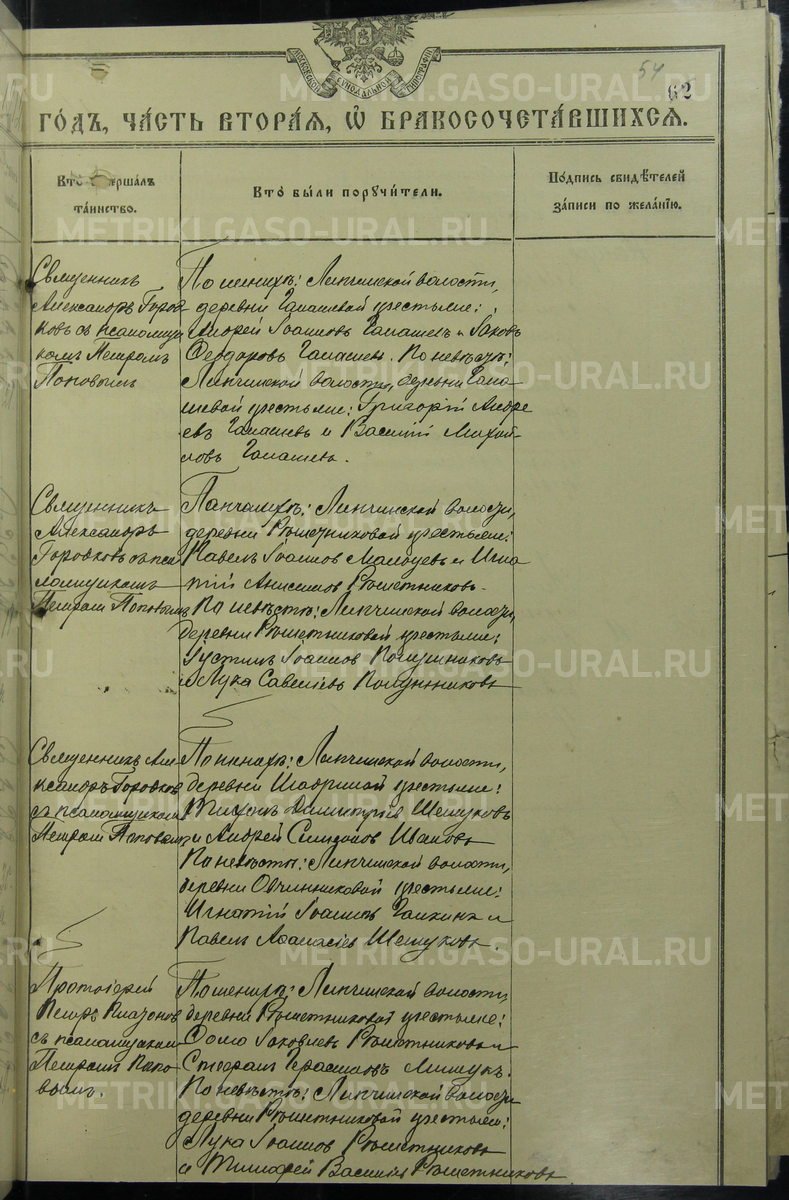 МОСКОВСКОЙ СѴНОДАЛЬНОЙ ТИПОГРАФІИ
54
62
ГО́ДЪ, ЧА́СТЬ ВТОРА́Я, Ѽ БРАКОСОЧЕТА́ВШИХСЯ.
Кто̀ совершалъ
та́инство.
Кто̀ бы́ли поручи́тели.
По́дпись свидѣ́телей
за́писи по жела́нїю.
Священникъ
Александръ Город-
ковъ съ псаломщи
комъ Петромъ
Поповымъ
По женихѣ: Липчинской волости,
деревни Галашевой крестьяне:
Андрей Іоанновъ Галашевъ и Іаковъ
Ѳеодоровъ Галашевъ. По невѣстѣ:
Липчинской волости, деревни Гала-
шевой крестьяне: Григорій Андре
евъ Галашевъ и Василій Михай-
ловъ Галашевъ.
Священникъ
Александръ
Городковъ съ пса
ломщикомъ
Петромъ Поповымъ
Липчинской волости,
деревни Рѣшетниковой крестьяне:
Павелъ Іоанновъ и Игна
тій Анисимовъ Рѣшетниковъ.
По невѣстѣ: Липчинской волости,
деревни Рѣшетниковой крестьяне:
Іустинъ Іоанновъ
и Лука Савельевъ
Священникъ Але
ксандръ Городковъ
съ псаломщикомъ
Петромъ Поповымъ
По женихѣ: Липчинской волости,
деревни крестьяне:
Тихонъ Димитріевъ Шешуковъ
и Андрей
По невѣстѣ: Липчинской волости,
деревни Овчинниковой крестьяне:
Игнатій Іоанновъ Галкинъ и
Павелъ Аѳанасіевъ Шешуковъ.
Протоіерей
Петръ
съ псаломщикомъ
Петромъ Попо-
вымъ.
По женихѣ: Липчинской волости,
деревни Рѣшетниковой крестьяне:
Ѳома Іаковлевъ Рѣшетниковъ и
Стефанъ Герасимовъ
По невѣстѣ: Липчинской волости
деревни Рѣшетниковой крестьяне:
Лука Іоанновъ Рѣшетниковъ
и Тимофей Василіевъ Рѣшетниковъ
METRIKI.GASO-URAL.RU